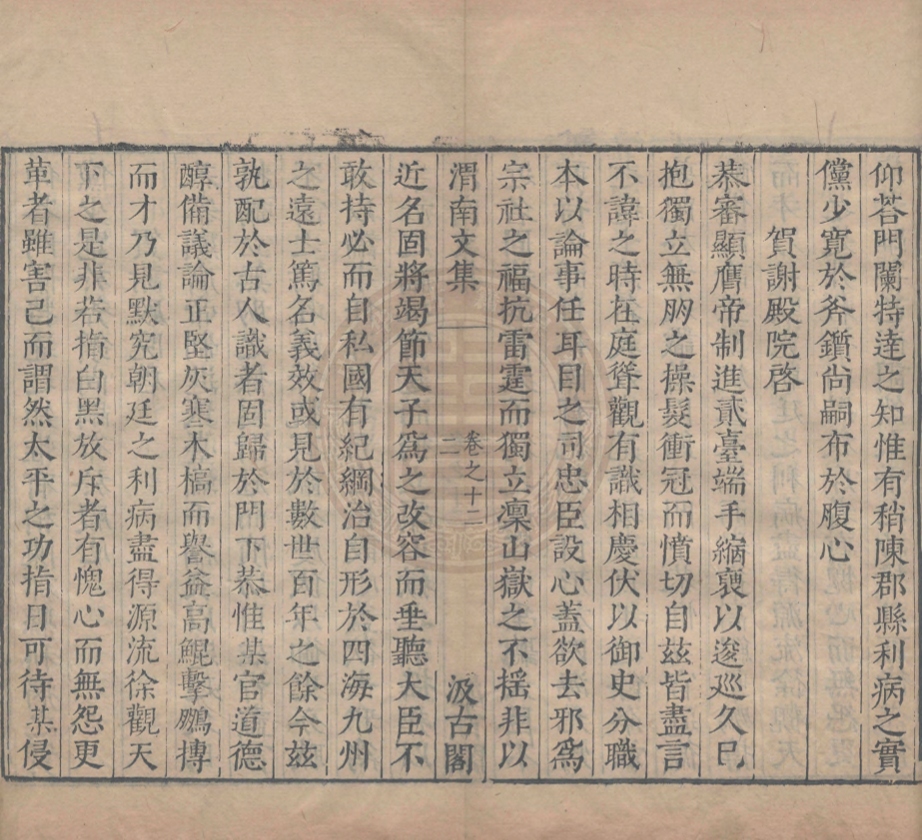 仰荅門闌特達之知惟有稍陳郡縣利病之實
儻少寬於斧鑕尚嗣布於腹心
賀謝殿院啓
恭審顯膺帝制進貳臺端手縮袌以逡巡久巳
抱獨立無朋之操髮衝冠而憤切自兹皆盡言
不諱之時在庭聳觀有識相慶伏以御史分職
本以論事任耳目之司忠臣設心蓋欲去邪爲
宗社之福抗雷霆而獨立凜山嶽之不搖非以
渭南文集 卷之十二 二 汲古閣
近名固將竭節天子爲之改容而垂聽大臣不
敢持必而自私國有紀綱治自形於四海九州
之遠士篤名義效或見於數世百年之餘今兹
孰配於古人識者固歸於門下恭惟某官道德
醇備議論正堅灰寒木槁而譽益高鯤擊鵬摶
而才乃見默究朝廷之利病盡得源流徐觀天
下之是非若指白黑放斥者有愧心而無怨更
革者雖害己而謂然太平之功指日可待某侵